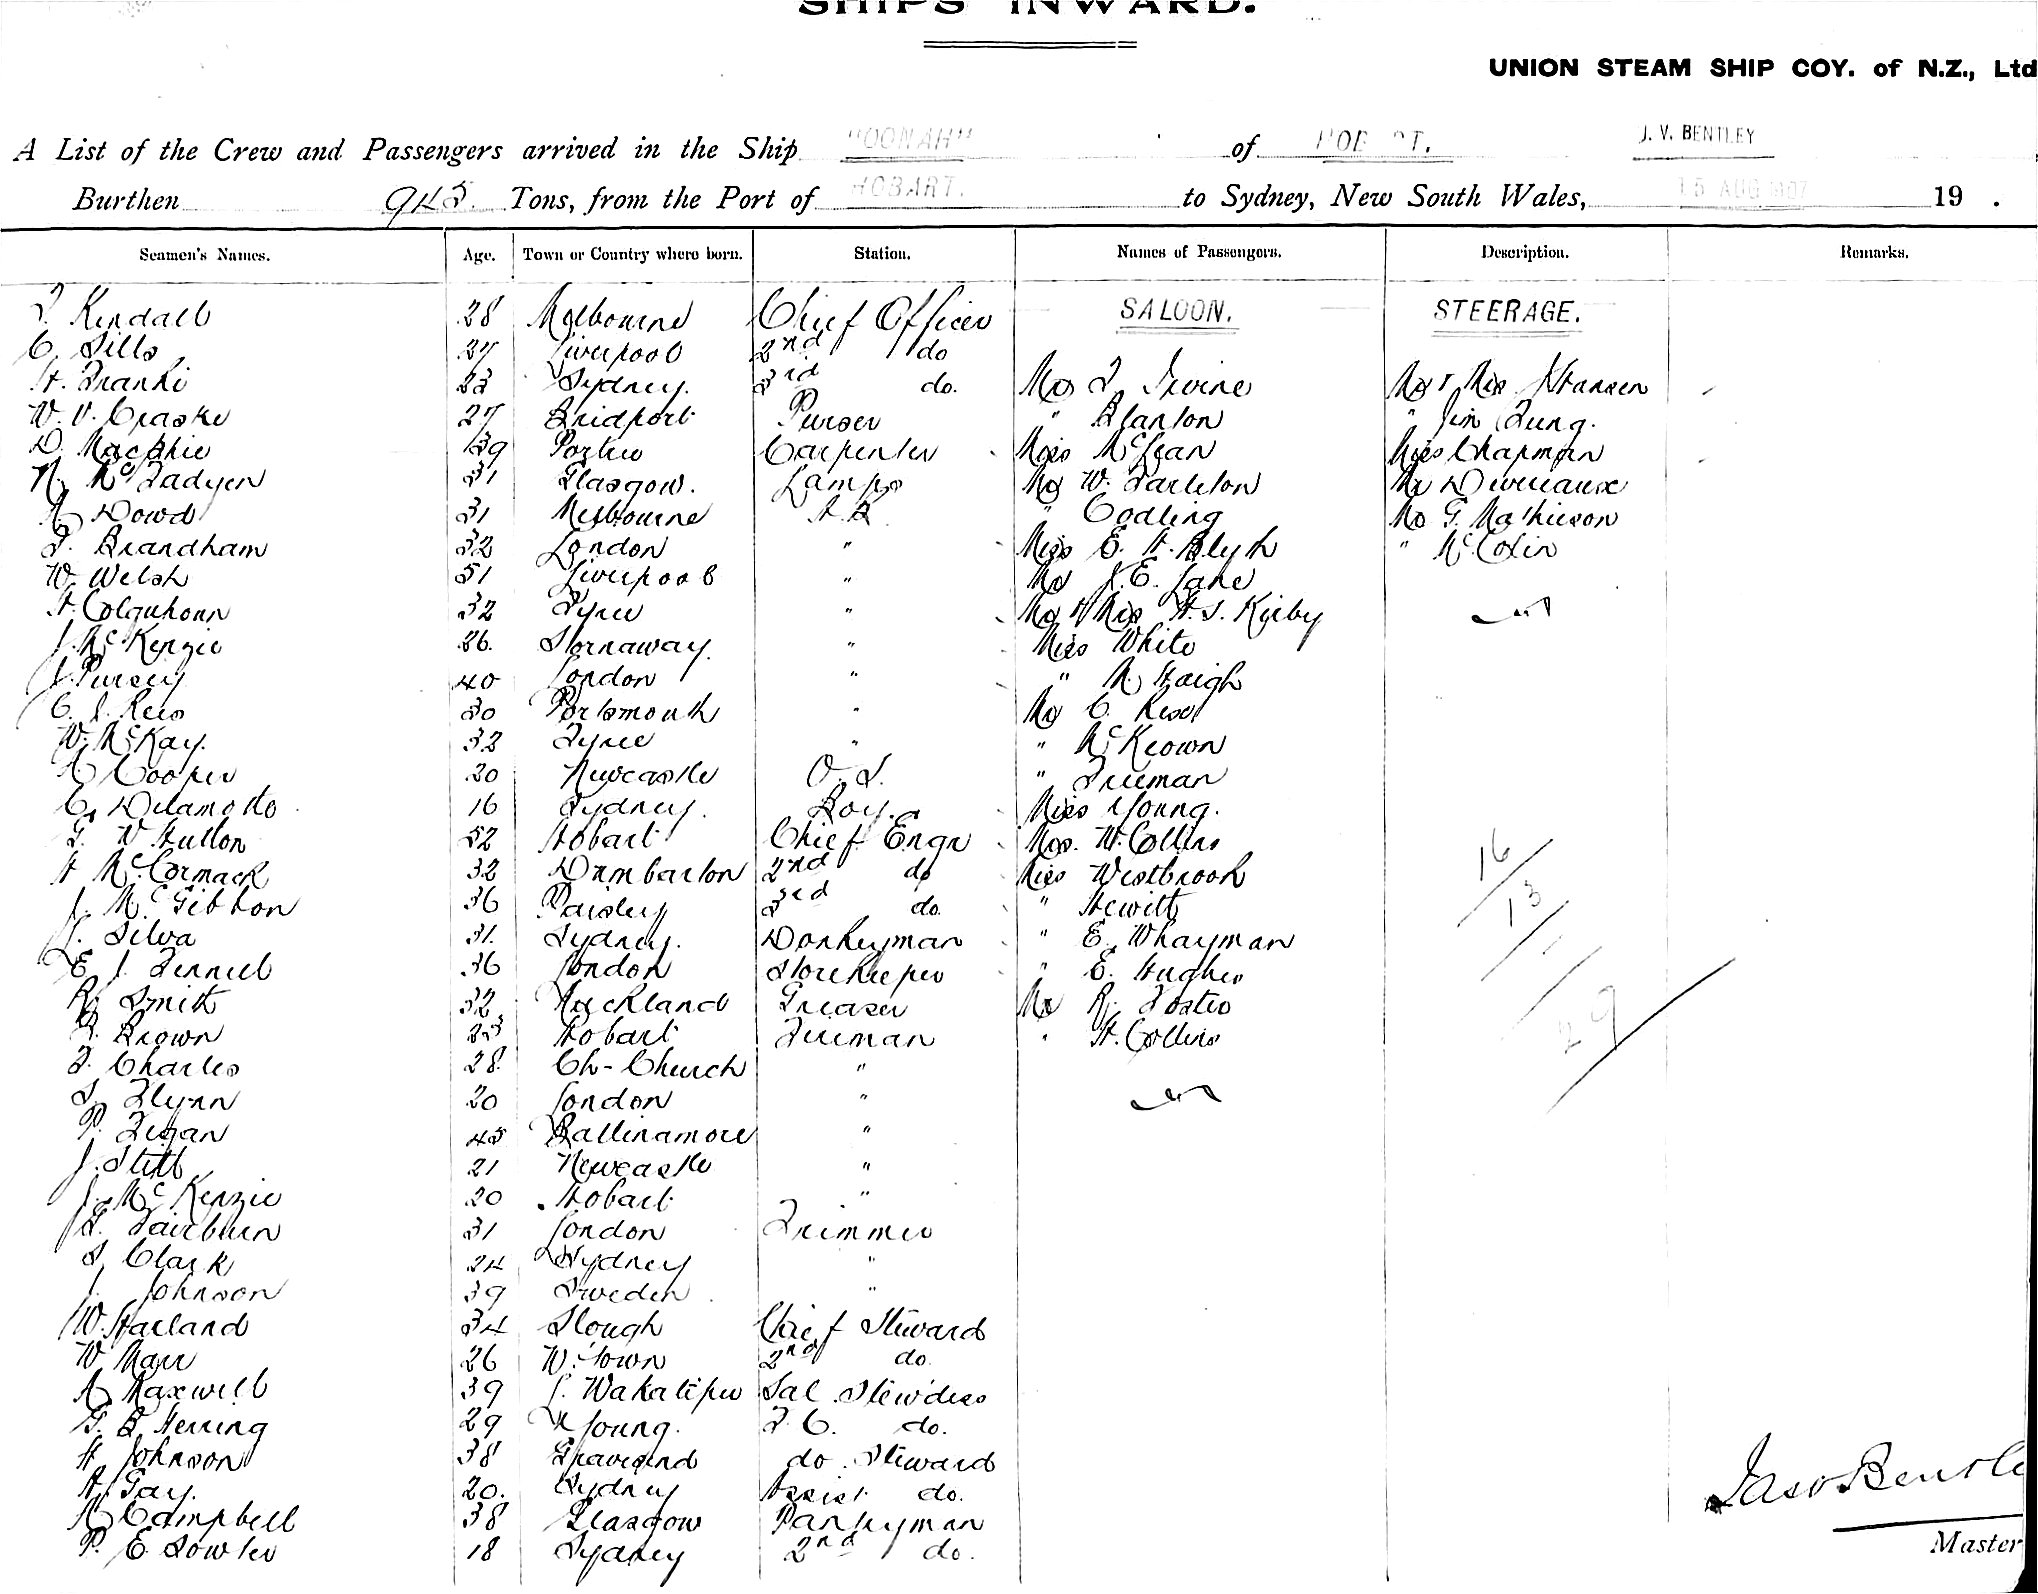 SHIPS INWARD.
UNION STEAM SHIP COY. of N.Z., Ltd
A List of the Crew and Passengers arrived in the Ship "OONAH" of HOBART. J. V. BENTLEY
Burthen 945 Tons, from the Port of HOBART. to Sydney, New South Wales, 15 AUG 1907 19 .
Seamen's Names. Age. Town or Country where born. Station. Names of Passengers. Description. Remarks.
Kendall 28 Melbourne Chief Officer SALOON. STEERAGE.
C. Sills 27 Liverpool 2nd do
H. Franki 23 Sydney. 3rd do. Mr Irvine Mr & Mrs Hansen
W. V. Craske 27 Bridport Purser " Blanton " Jim Lung.
D. Macphie 39 Carpenter Miss McLean Miss Chapman
N. McFadyen 31 Glasgow. Lamps Mr W. Tarleton Mr Diveriaux
Dowd 31 Melbourne A.B. " Codling Mr G. Mathieson
Brandham 32 London " Miss E. H. Blyth " McColin
W. Welsh 51 Liverpool " Mr J. E. Lane
H. Colquhoun 32 Tyree " Mr & Mrs H. S. Kirby
J. McKenzie 26. Stornaway. " Miss White
J. Pursey 40 London " " Haigh
C. J. Rees 30 Portsmouth " Mr C.
W. McKay. 32 Tyree " " McKeown
A Cooper 20 Newcastle O.S. " Freeman
C. Delamotte 16 Sydney. Boy. Miss Young.
G. W Hutton 52 Hobart Chief Engr Mrs. W. Collins
H McCormack 32 Dumbarton 2nd do Miss Westbrook
J. McGibbon 36 Paisley 3rd do. " Hewitt
J. Silva 31. Sydney. Donkeyman " E. Whayman
E J. Fennell 36 London Storekeeper " E. Hughes
R Smith 32 Auckland Greaser Mr R. Foster
Brown 23 Hobart Fireman " H. Collins
F. Charles 28. Ch-Church "
Flynn 20 London "
P. Fegan 45 Ballinamore "
J. Stitt 21 Newcastle "
J. McKenzie 20 Hobart "
Fairburn 31 London Trimmer
S Clark 24 Sydney "
J. Johnson 39 Sweden "
W. Harland 34 Slough Chief Steward
W Marr 26 W. Town 2nd do.
A Maxwell 39 L. Wakatipu Sal. Stew'dess
G. B Herring 29 Young. F. C. do.
H Johnson 38 Gravesend do. Steward
A Gay. 20. Sydney Assist do.
A Campbell 38 Glasgow Pantryman
P. E. Fowler 18 Sydney 2nd do.
16
13
29
Master